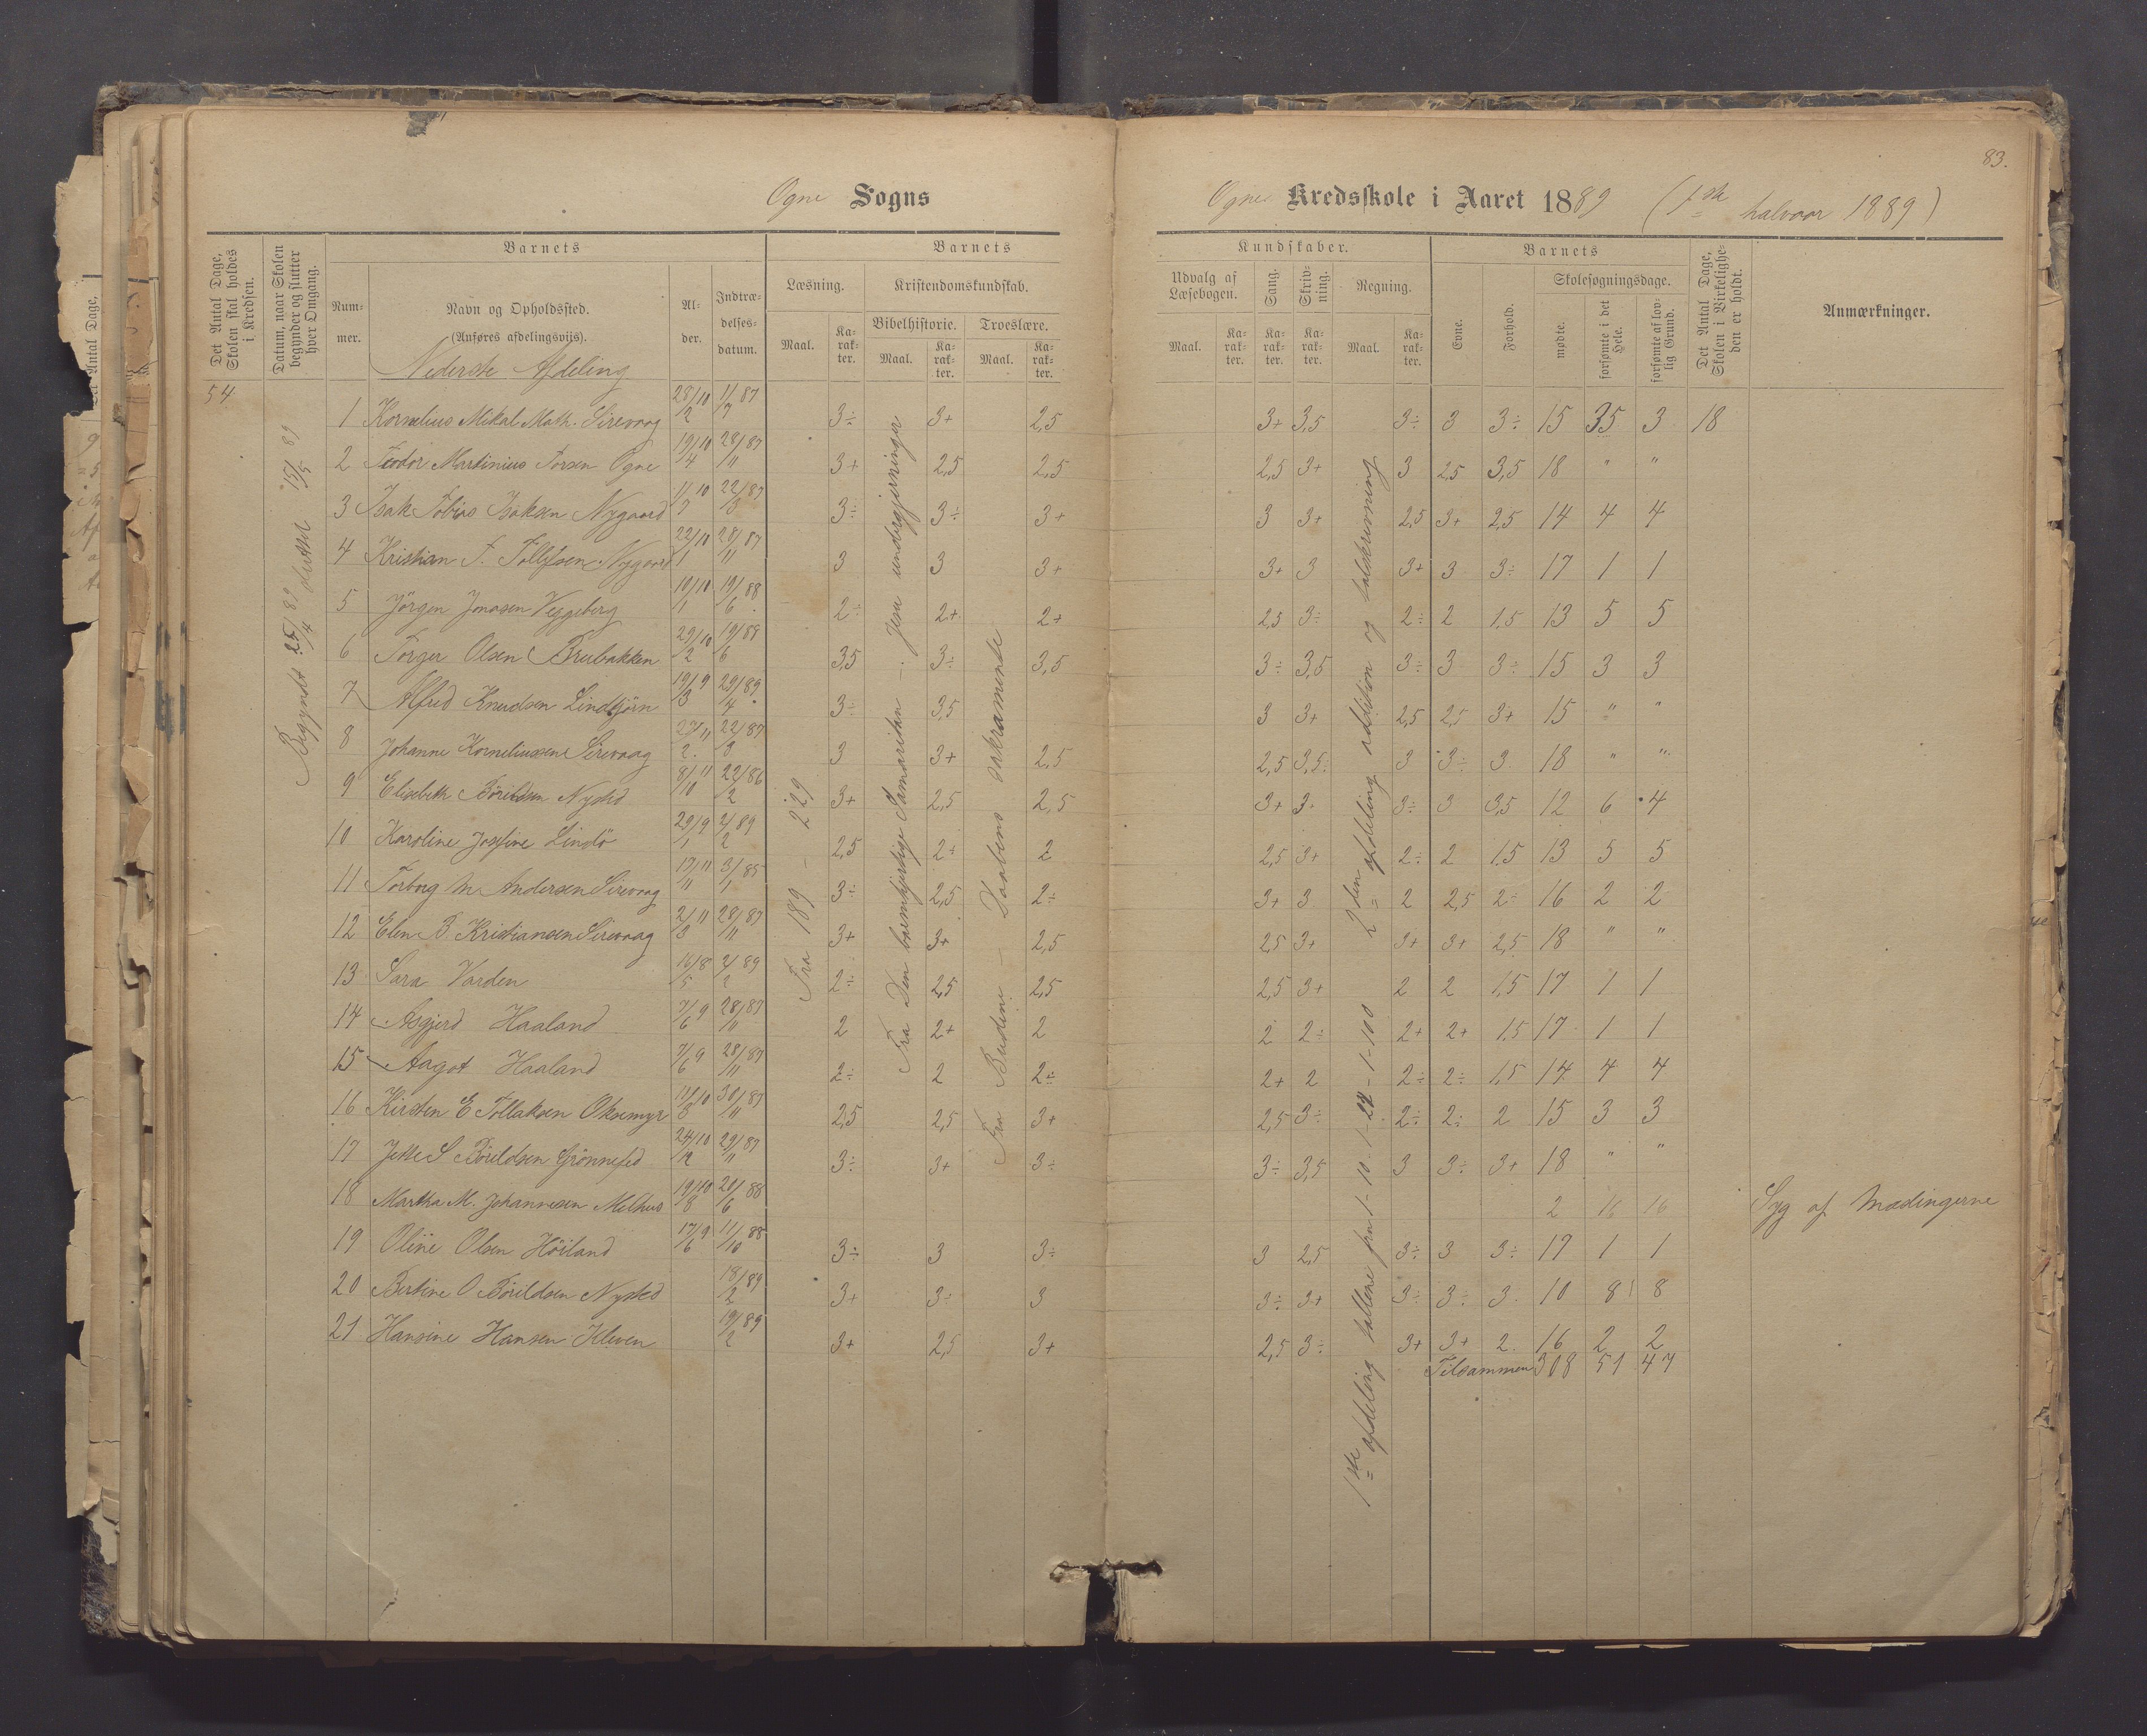 83.
Ogne Sogns Ogne Kredsskole i Aaret 1889 (1ste halvaar 1889)
Det Antal Dage, Skolen skal holdes i Kredsen.
Datum, naar Skolen begynder og slutter hver Omgang.
Barnets
Nummer.
Navn og Opholdssted.
(Anføres afdelingsviis).
Alder.
Indtrædelsesdatum.
Barnets
Læsning.
Maal.
Karakter.
Kristendomskundskab.
Bibelhistorie.
Maal.
Karakter.
Troeslære.
Maal.
Karakter.
Kundskaber.
Udvalg af Læsebogen.
Maal.
Karakter.
Sang.
Karakter.
Skrivning.
Karakter.
Regning.
Maal.
Karakter.
Barnets
Evne.
Forhold.
Skolesøgningsdage.
mødte.
forsømte i det Hele.
forsømte af lovlig Grund.
Det Antal Dage, Skolen i Virkeligheden er holdt.
Anmærkninger.
Nederste Afdeling
54
Begyndt 25/4 89 sluttet 15/5 89
Fra 189 – 229
Fra Den barmhjertige Samaritan – Jesu undergjerninger
Fra Budene – Daabens sakramente
1ste afdeling tallene fra 1-10. 1-20 - 1-100
2den afdeling addition og talskrivning
1 Kornelius Mikal Math. Sirevaag 28/10 2 11/7 87 3÷ 3+ 2,5 3+ 3,5 3÷ 3 3÷ 15 35 3 18
2 Teodor Martinius Torsen Ogne 19/10 4 28/11 87 3+ 2,5 2,5 2,5 3+ 3 2,5 3,5 18 " "
3 Isak Tobias Isaksen Nygaard 11/10 7 22/3 87 3÷ 3÷ 3+ 3 3+ 2,5 3+ 2,5 14 4 4
4 Kristian T. Tollefsen Nygaard 22/10 1 28/11 87 3 3 3+ 3+ 3 3+ 3 3÷ 17 1 1
5 Jörgen Jonasen Veggeberg 10/10 1 19/6 88 2÷ 2+ 2+ 2,5 3÷ 2÷ 2 1,5 13 5 5
6 Torger Olsen Brubakken 29/10 2 19/6 88 3,5 3÷ 3,5 3÷ 3,5 3÷ 3 3÷ 15 3 3
7 Alfred Knudsen Lindtjörn 19/9 3 29/4 89 3÷ 3,5 3 3+ 2,5 2,5 3+ 15 " "
8 Johanne Korneliussen Sirevaag 27/11 2 22/3 87 3 3+ 2,5 2,5 3,5÷ 3 3÷ 3 18 " "
9 Elisabeth Böreldsen Nysted 8/11 10 22/2 86 3+ 2,5 2,5 3+ 3 3÷ 3 3,5 12 6 4
10 Karoline Josefine Lindö 29/9 1 4/2 89 2,5 2+ 2 2,5 3+ 2÷ 2 1,5 13 5 5
11 Torborg M Andersen Sirevaag 17/11 11 3/1 85 3÷ 2,5 2÷ 3+ 3 2 2,5 2÷ 16 2 2
12 Elen B Kristiansen Sirevaag 2/11 3 28/11 87 3+ 3+ 2,5 2,5 3+ 3+ 3+ 2,5 18 " "
13 Sara Varden 16/8 5 4/2 89 2÷ 2,5 2,5 2,5 3+ 2 2 1,5 17 1 1
14 Asgjerd Haaland 7/9 6 28/11 87 2 2+ 2 2 2÷ 2+ 2+ 1,5 17 1 1
15 Aagot Haaland 7/9 6 28/11 87 2÷ 2 2÷ 2+ 2 2÷ 2÷ 1,5 14 4 4
16 Kirsten E Tollaksen Oksemyr 11/10 8 30/11 87 2,5 2,5 3+ 2,5 3÷ 2÷ 2÷ 2 15 3 3
17 Jette S Böreldsen Grönnefed 24/10 12 29/11 87 3÷ 3+ 3÷ 3÷ 3,5 3 3÷ 3+ 18 " "
18 Martha M. Johannesen Melhus 19/10 8 20/6 88 2 16 16 Syg af Mæslingerne
19 Oline Olsen Höiland 17/9 6 11/10 88 3÷ 3 3÷ 3 2,5 3÷ 3 3÷ 17 1 1
20 Bertine O Böreldsen Nysted 18/2 89 3+ 3÷ 3 3÷ 3+ 3÷ 3÷ 3 10 8 8
21 Hansine Hansen Kleven 19/2 89 3+ 2,5 3+ 2,5 3÷ 3+ 3+ 2 16 2 2
Tilsammen 308 51 47